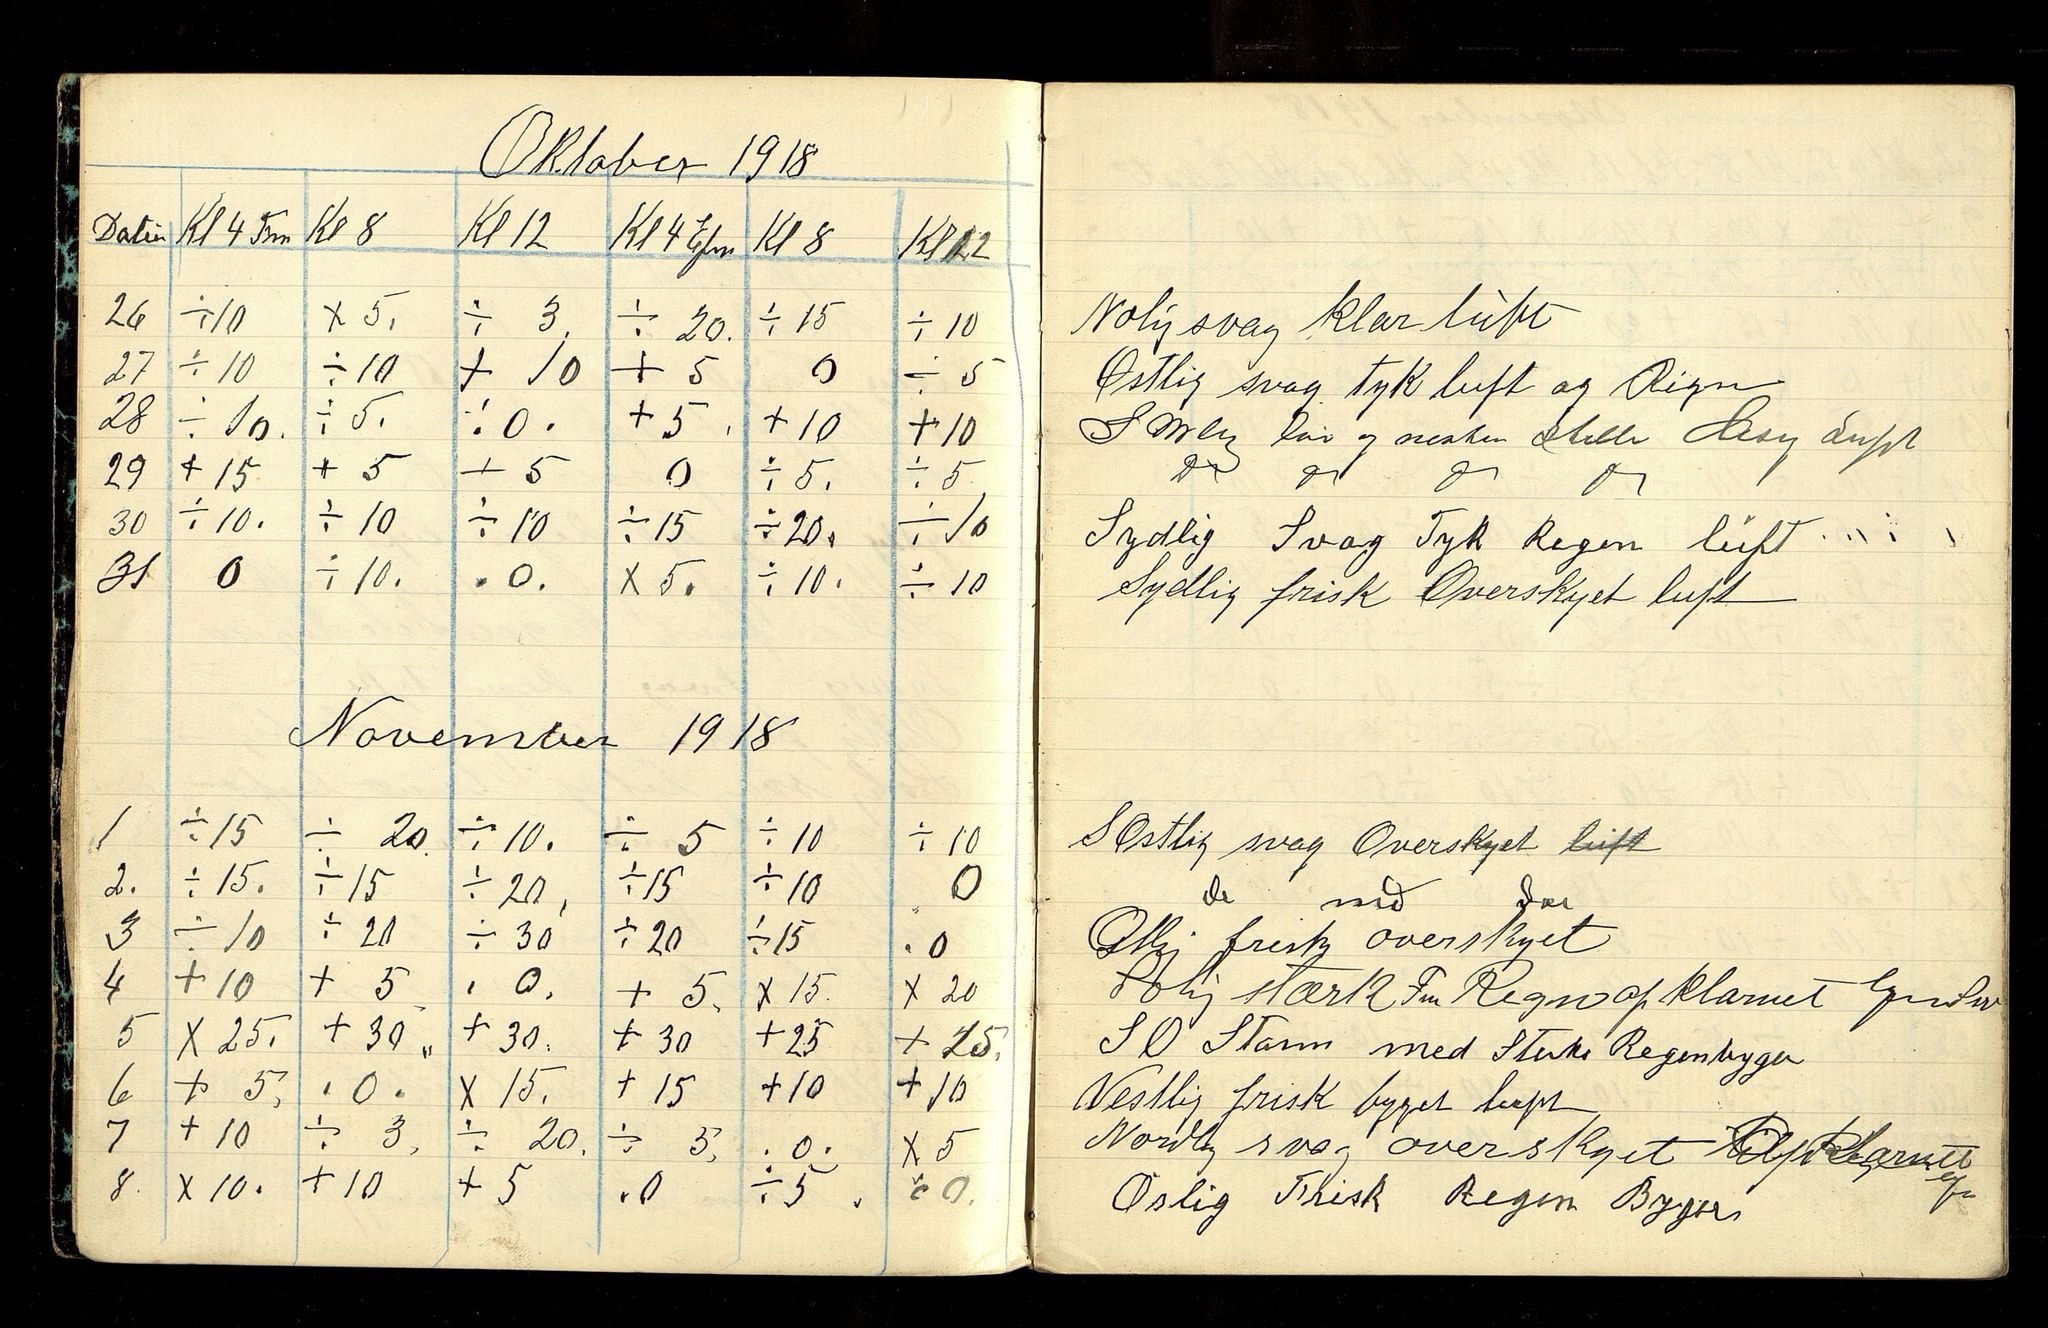 Oktober 1918
Datum Kl 4 Fm Kl 8 Kl 12 Kl 4 Efm Kl 8 Kl 12
26 ÷10 x 5. ÷ 3. ÷ 20. ÷ 15 ÷ 10
27 ÷ 10 ÷10 + 10 + 5 0 ÷ 5
28 ÷ 10. ÷ 5. ÷ 0. + 5. + 10 + 10
29 + 15 + 5 + 5 0 ÷ 5. ÷ 5
30 ÷ 10. ÷ 10 ÷ 10 ÷ 15 ÷ 20. ÷ 10
31 0 ÷ 10. . 0. x 5. ÷ 10. ÷ 10
November 1918
1 ÷ 15 ÷ 20. ÷ 10. ÷ 5 ÷ 10 ÷ 10
2. ÷ 15. ÷ 15 ÷ 20. ÷ 15 ÷ 10 0
3 ÷ 10 ÷ 20 ÷ 30 ÷ 20 ÷ 15 . 0
4 + 10 + 5 . 0. + 5. x 15. x 20
5 x 25. + 30 + 30. + 30 + 25 + 25.
6 + 5. . 0. x 15. + 15 + 10 + 10
7 + 10 ÷ 3. ÷ 20. ÷ 5. . 0. x 5
8. x 10. + 10 + 5 . 0 ÷ 5. 0.
Nolig svag klar luft
Ostlig svag tyk luft og Rign
og nesten stille Luft
Sydlig Svag Tyk Regen luft
Sydlig frisk Overskyet luft
S Ostlig svag Overskyet luft
do med do
frisk overskyet
stærk Fm Regn opklarnet
S O Storm med Sterke Regenbyger
Vestlig frisk byget luft
Nordlig svag overskyet Opklarnet
Oslig Frisk Regen Byger